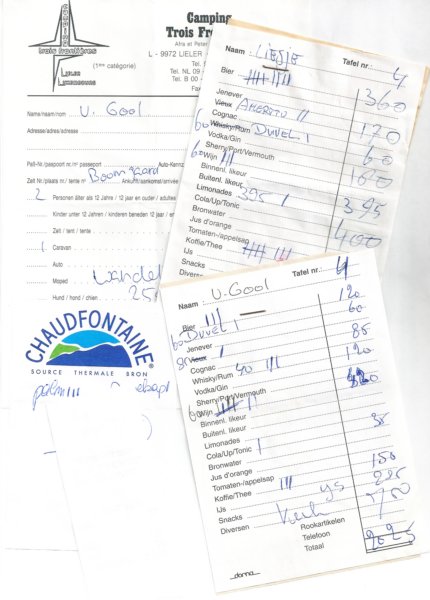 Camping
Trois Fr
Afra et Peter
L - 9972 LIELER
Tel. 
Tel. NL 09 -
Tel. B 00 -
Fax
CAMPING
trois frontières
LIELER
LUXEMBOURG
(1ère catégorie)
Name/naam/nom: v. Gool
Adresse/adres/adresse:
Paß-Nr/paspoort nr/nr passeport
Auto-Kennz
Zelt Nr/plaats nr/tente nr
Ankunft/aankomst/arrivée
2 Personen älter als 12 Jahre / 12 jaar en ouder / adultes
Kinder unter 12 Jahren / kinderen beneden 12 jaar / enf
Zelt / tent / tente
1 Caravan
Auto
Moped
Hund / hond / chien
CHAUDFONTAINE
SOURCE THERMALE BRON
Naam : LIESJE Tafel nr.: 4
Bier
Jenever 360
Vieux AMERETTO II
Cognac 170
60 Whisky/Rum DUVEL 1
Vodka/Gin 60
Sherry/Port/Vermouth
60 Wijn III 180
Binnenl. likeur
Buitenl. likeur
Limonades 395 1 395
Cola/Up/Tonic
Bronwater 400
Jus d'orange
Tomaten-/appelsap
Koffie/Thee
IJs
Snacks
Diversen
Naam : v. Gool Tafel nr.: 4
Bier III 120
60 DUVEL 1 60
Jenever
80 Vieux 1 80
Cognac
Whisky/Rum 40 III 120
Vodka/Gin
Sherry/Port/Vermouth
60 Wijn
Binnenl. likeur
Buitenl. likeur
Limonades
Cola/Up/Tonic 1
Bronwater
Jus d'orange
Tomaten-/appelsap 150
Koffie/Thee III
IJs ys
Snacks
Diversen
Rookartikelen
Telefoon
Totaal 2025
doma